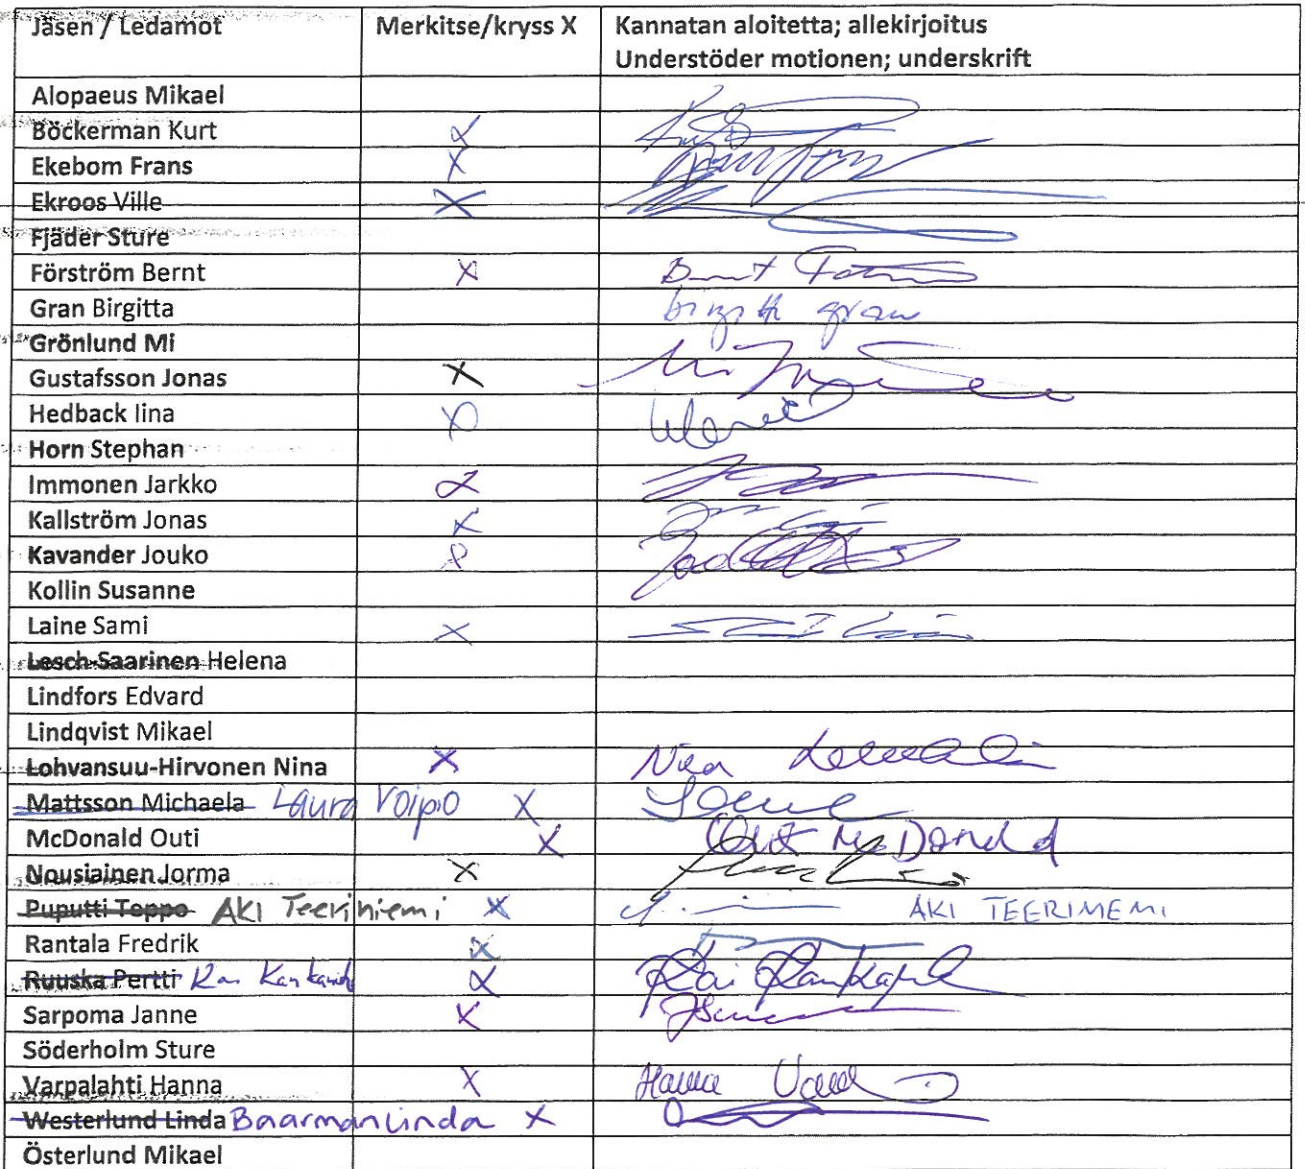 Jäsen / Ledamot Merkitse/kryss X Kannatan aloitetta; allekirjoitus
Understöder motionen; underskrift
Alopaeus Mikael
Böckerman Kurt X
Ekebom Frans X
Ekroos Ville X
Fjäder Sture
Förström Bernt X Bernt
Gran Birgitta birgitta gran
Grönlund Mi
Gustafsson Jonas X
Hedback Iina X
Horn Stephan
Immonen Jarkko X
Kallström Jonas X
Kavander Jouko X
Kollin Susanne
Laine Sami X
Lesch-Saarinen Helena
Lindfors Edvard
Lindqvist Mikael
Lohvansuu-Hirvonen Nina X Nina
Mattsson Michaela Laura Voipio X
McDonald Outi X Outi McDonald
Nousiainen Jorma X
Puputti Teppo AKI Teeriniemi X AKI TEERINIEMI
Rantala Fredrik X
Ruuska Pertti Kai X Kai
Sarpoma Janne X
Söderholm Sture
Varpalahti Hanna X Hanna
Westerlund Linda Baarman Linda X
Österlund Mikael